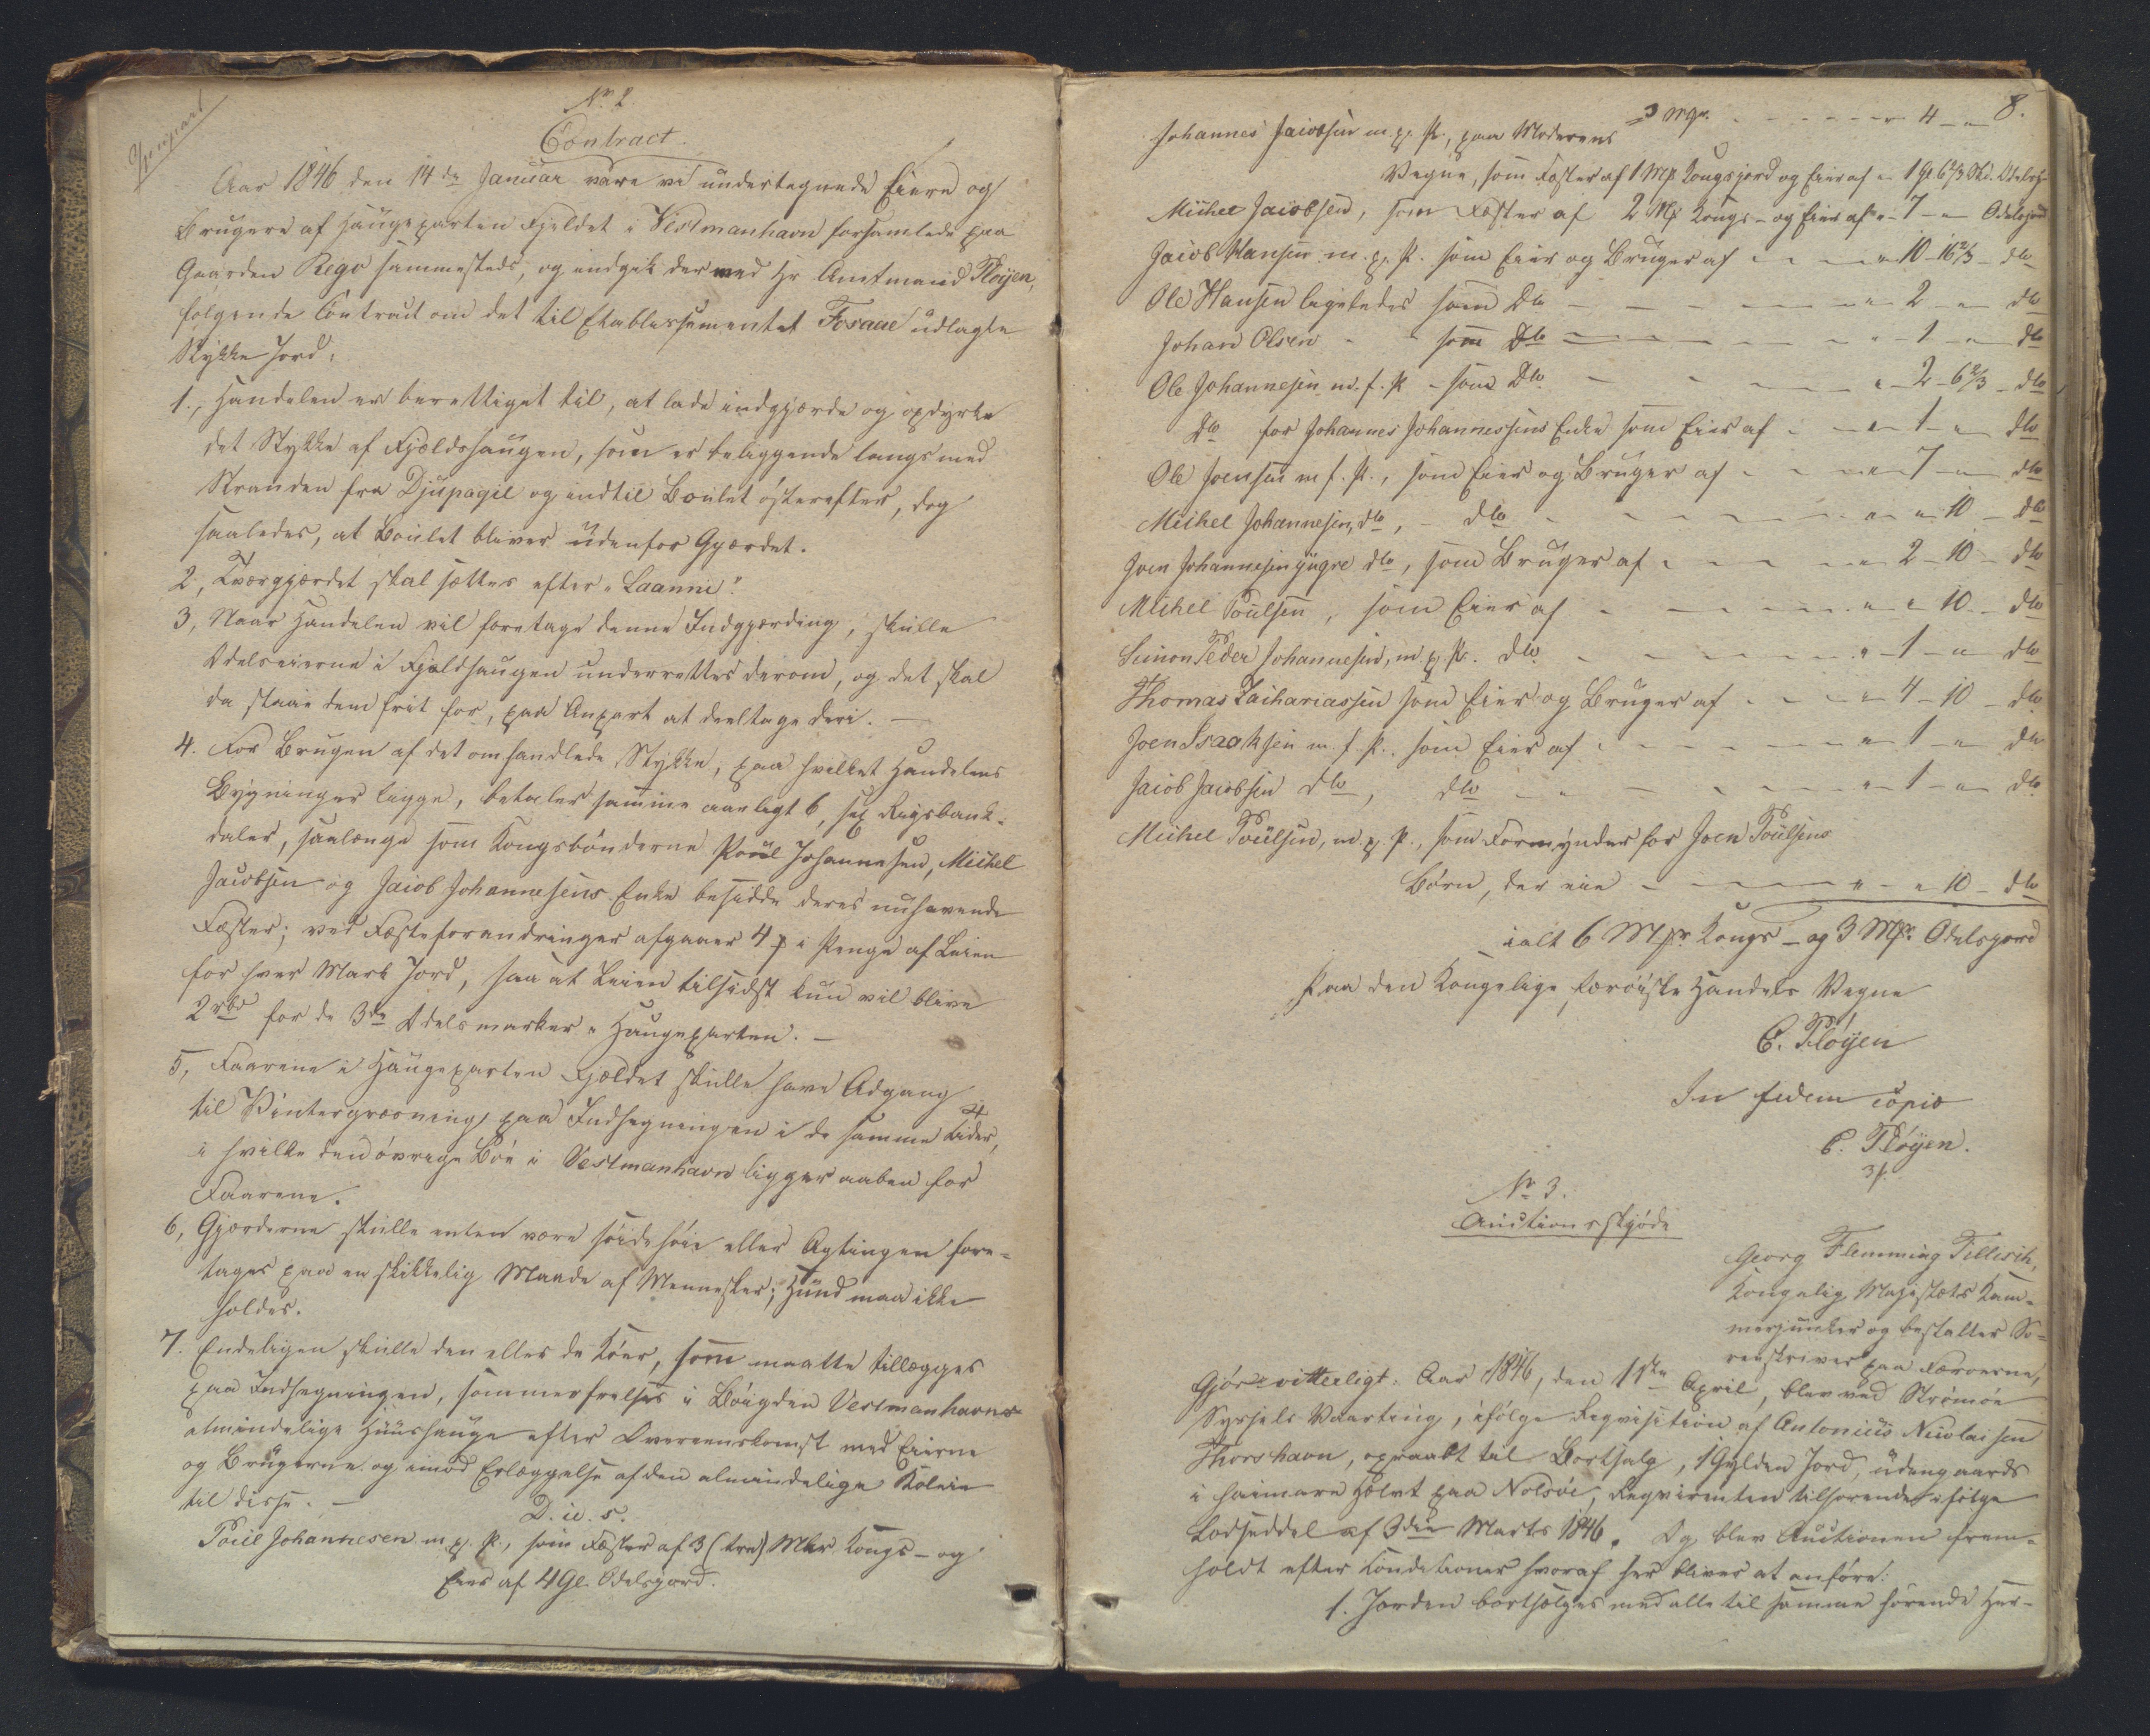 No 2
Contract.
Aar 1846 den 14de Januar vare vi undertegnede Eiere og
Brugere af Haugeparten Fjeldet i Vestmanhavn forsamlede paa
Gaarden Rego sammesteds, og indgik der med Hr Amtmand Pløyen,
følgende Contract om det til Etablissementet Fosaae udlagte
Stykke Jord:
1., Handelen er berettiget til, at lade indgjærde og opdyrke
det Stykke af Fjeldshaugen, som er beliggende langs med
Stranden fra Djupagil og indtil Boulet østerefter, dog
saaledes, at Boulet bliver udenfor Gjærdet.
2, Tværgjærdet skal sættes efter "Laanni".
3, Naar Handelen vil foretage denne Indgjærding, skulle
Odelseierne i Fjeldhaugen underrettes derom, og det skal
da staae dem frit for, paa Anpart at deeltage deri. —
4. For Brugen af det omhandlede Stykke, paa hvilket Handelens
Bygninger ligge, betaler samme aarligt 6, sex Rigsbank-
daler, saalænge som Kongsbønderne Poul Johannesen, Michel
Jacobsen og Jacob Johannesens Enke besidde deres nuhavende
Fæster; ved Fæsteforandringer afgaaer 4 β i Penge af Leien
for hver Mark Jord, saa at Leien tilsidst kun vil blive
2 rbd for de 3de Odelsmarker i Haugeparten. —
5, Faarene i Haugeparten Fjældet skulle have Adgang
til Vintergræsning paa Indhegningen i de samme Tider,
i hvilke den øvrige Bøe i Vestmanhavn ligger aaben for
Faarene.
6, Gjærderne skulle enten være søidehøie eller Agtingen fore-
tages paa en skikkelig Maade af Mennesker; Hund maa ikke
holdes.
7. Endeligen skulle den eller de Køer, som maatte tillægges
paa Indhegningen, sommerfrelses i Bøigden Vestmanhavns
almindelige Huushauge efter Overeenskomst med Eierne
og Brugerne og imod Erlæggelse af den almindelige Koleie
til disse. —
D. u. s.
Poul Johannesen m. p. P., som Fæster af 3 (tre) Mkr Kongs- og
Eier af 4 Gl. Odelsjord.
8.
3 Mgr. — 4 — "
Johannes Jacobsen m. p. P., paa Moderens
Vegne, som Fæster af 1 Mk Kongsjord og Eier af — 1 Gl 6 2/3 Skd. Odelsj.
Michel Jacobsen, som Fæster af 2 Mk Kongs- og Eier af — 7 — " Odelsjord
Jacob Hansen m. p. P. som Eier og Bruger af — 10 - 16 2/3 — do
Ole Hansen ligeledes som Do — 2 — " do
Johan Olsen - som Do — 1 — " do
Ole Johannesen m. f. P. - som Do — 2 - 6 2/3 — do
Do for Johannes Johannessens Enke som Eier af — 1 — " do
Ole Joensen m. f. P., som Eier og Bruger af — 7 — " do
Michel Johannesen, do, - do — " 10 — do
Joen Johannesen yngre do, som Bruger af — 2 - 10 — do
Michel Poulsen, som Eier af — " 10 — do
Simon Peder Johannesen, m. p. P. do — 1 — " do
Thomas Zachariassen som Eier og Bruger af — 4 - 10 — do
Joen Isaaksen m. f. P. som Eier af — 1 — " do
Jacob Jacobsen do, do — 1 — " do
Michel Poulsen, m. p. P., som Formynder for Joen Poulsens
Børn, der eie — " 10 — do
ialt 6 Mkr Kongs- og 3 Mkr Odelsjord
Paa den Kongelige færøiske Handels Vegne
C. Pløyen
In fidem copiæ
C. Pløyen.
3 β
No 3.
Auctionsskjøde
Georg Flemming Tillisch,
Kongelig Majestets Kam-
merjunker og bestalter So-
renskriver paa Færoerne,
Gjør vitterligt: Aar 1846, den 1ste April, blev ved Strømøe
Syssels Vaarting, ifølge Reqvisition af Antonius Nicolaisen
Thorshavn, opraabt til Bortsalg, 1 Gylden Jord, udengaards
i heimara Helvt paa Nolsøe, Reqvirenten tilhørende ifølge
Lodseddel af 3die Marts 1846. Og blev Auctionen frem-
holdt efter Conditioner hvoraf her bliver at anføre:
1. Jorden bortsælges med alle til samme hørende Her-